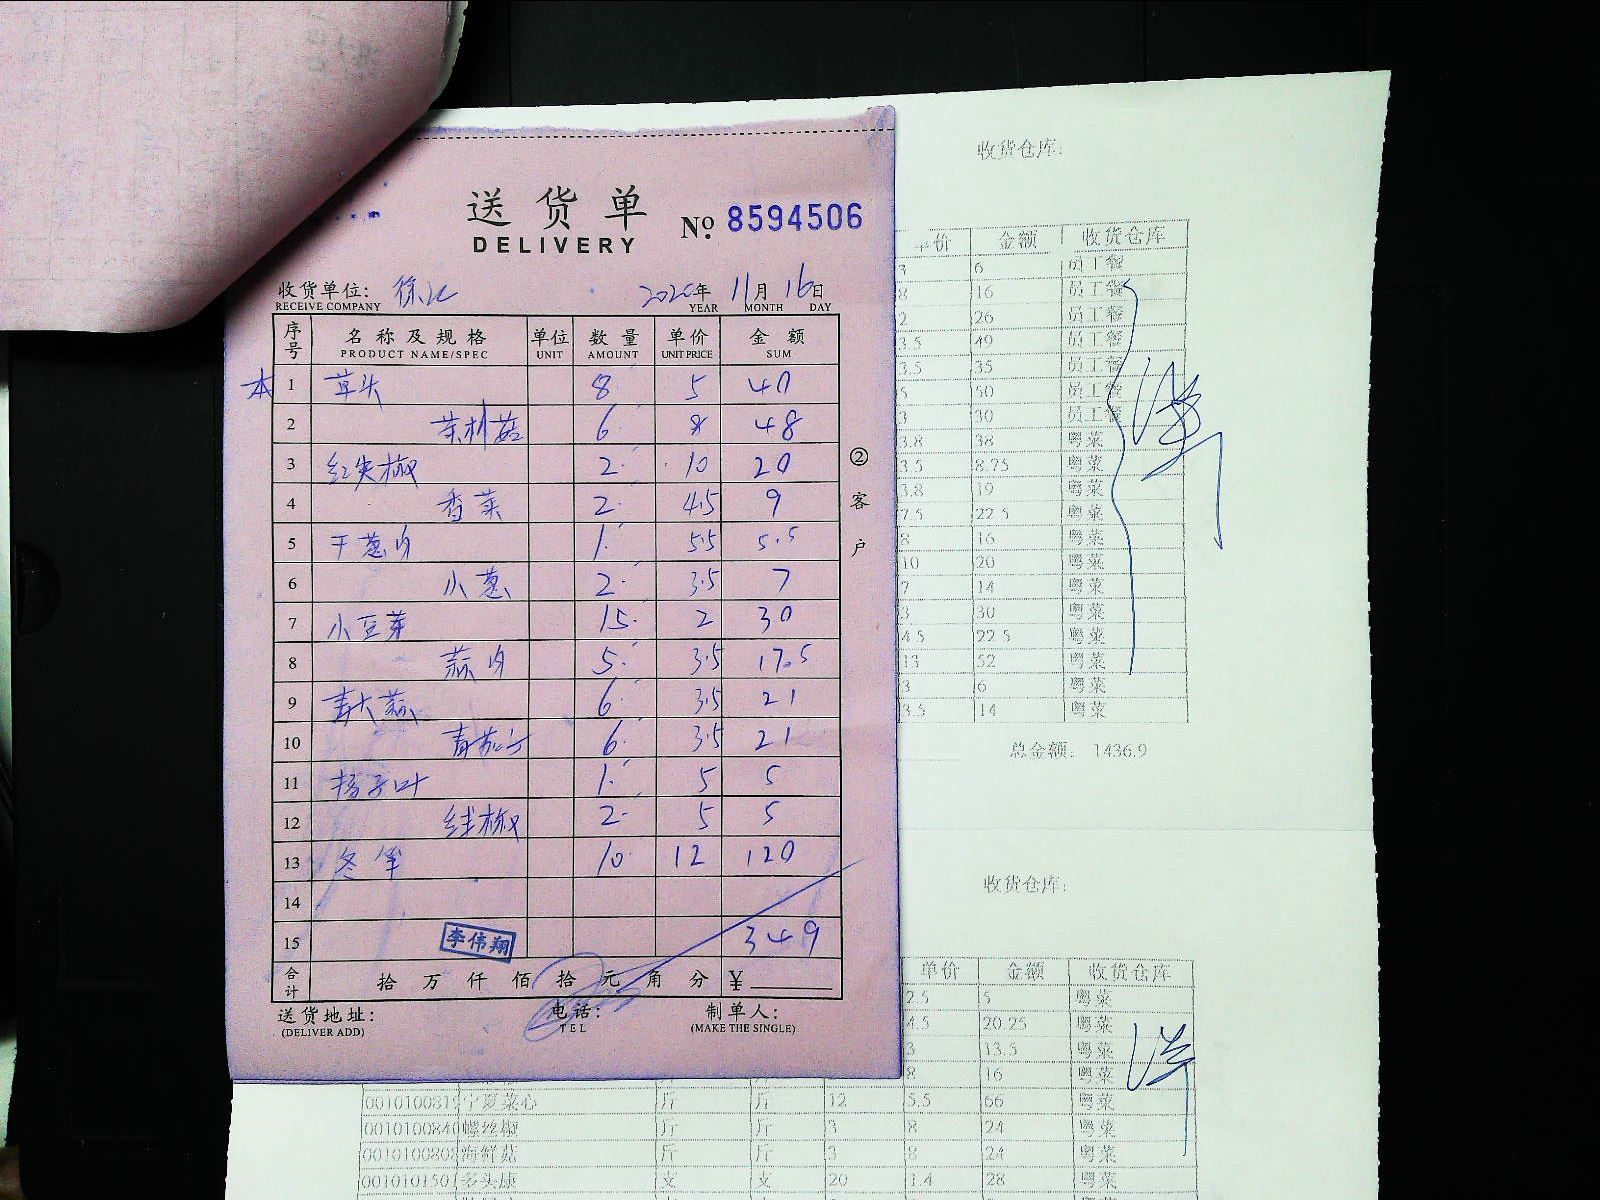 送货单 № 8594506
DELIVERY
收货单位: 徐汇 2020年 11月 16日
RECEIVE COMPANY YEAR MONTH DAY
序号 名称及规格 单位 数量 单价 金额
PRODUCT NAME/SPEC UNIT AMOUNT UNIT PRICE SUM
本 1 草头 8 5 40
2 茶树菇 6 8 48
3 红尖椒 2 10 20
4 香菜 2 4.5 9
5 干葱肉 1 5.5 5.5
6 小葱 2 3.5 7
7 小豆芽 15 2 30
8 蒜肉 5 3.5 17.5
9 青大蒜 6 3.5 21
10 6 3.5 21
11 1 5 5
12 线椒 2 5 5
13 冬笋 10 12 120
14
15 李伟翔 349
合计 拾 万 仟 佰 拾 元 角 分 ¥
送货地址: 电话: 制单人:
(DELIVER ADD) TEL (MAKE THE SINGLE)
② 客户
收货仓库:
单价 金额 收货仓库
3 6 员工餐
8 16 员工餐
2 26 员工餐
3.5 49 员工餐
3.5 35 员工餐
5 50 员工餐
3 30 员工餐
3.8 38 粤菜
3.5 8.75 粤菜
3.8 19 粤菜
7.5 22.5 粤菜
8 16 粤菜
10 20 粤菜
7 14 粤菜
3 30 粤菜
4.5 22.5 粤菜
13 52 粤菜
3 6 粤菜
3.5 14 粤菜
总金额: 1436.9
收货仓库:
单价 金额 收货仓库
2.5 5 粤菜
4.5 20.25 粤菜
3 13.5 粤菜
8 16 粤菜
0010100819 宁夏菜心 斤 斤 12 5.5 66 粤菜
0010100840 螺丝椒 斤 斤 3 8 24 粤菜
0010100808 海鲜菇 斤 斤 3 8 24 粤菜
0010101501 多头康 支 支 20 1.4 28 粤菜